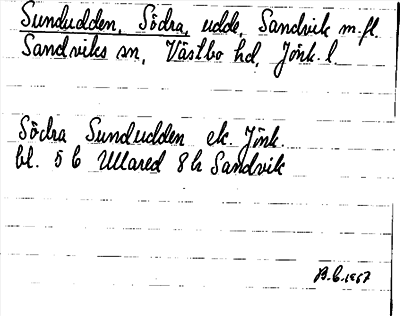 Sundudden, Södra, udde, Sandvik m.fl.
Sandviks sn, Västbo hd, Jönk. l.
Södra Sundudden ek. Jönk.
bl. 5 C Ullared 8 h Sandvik
B.C. 1967